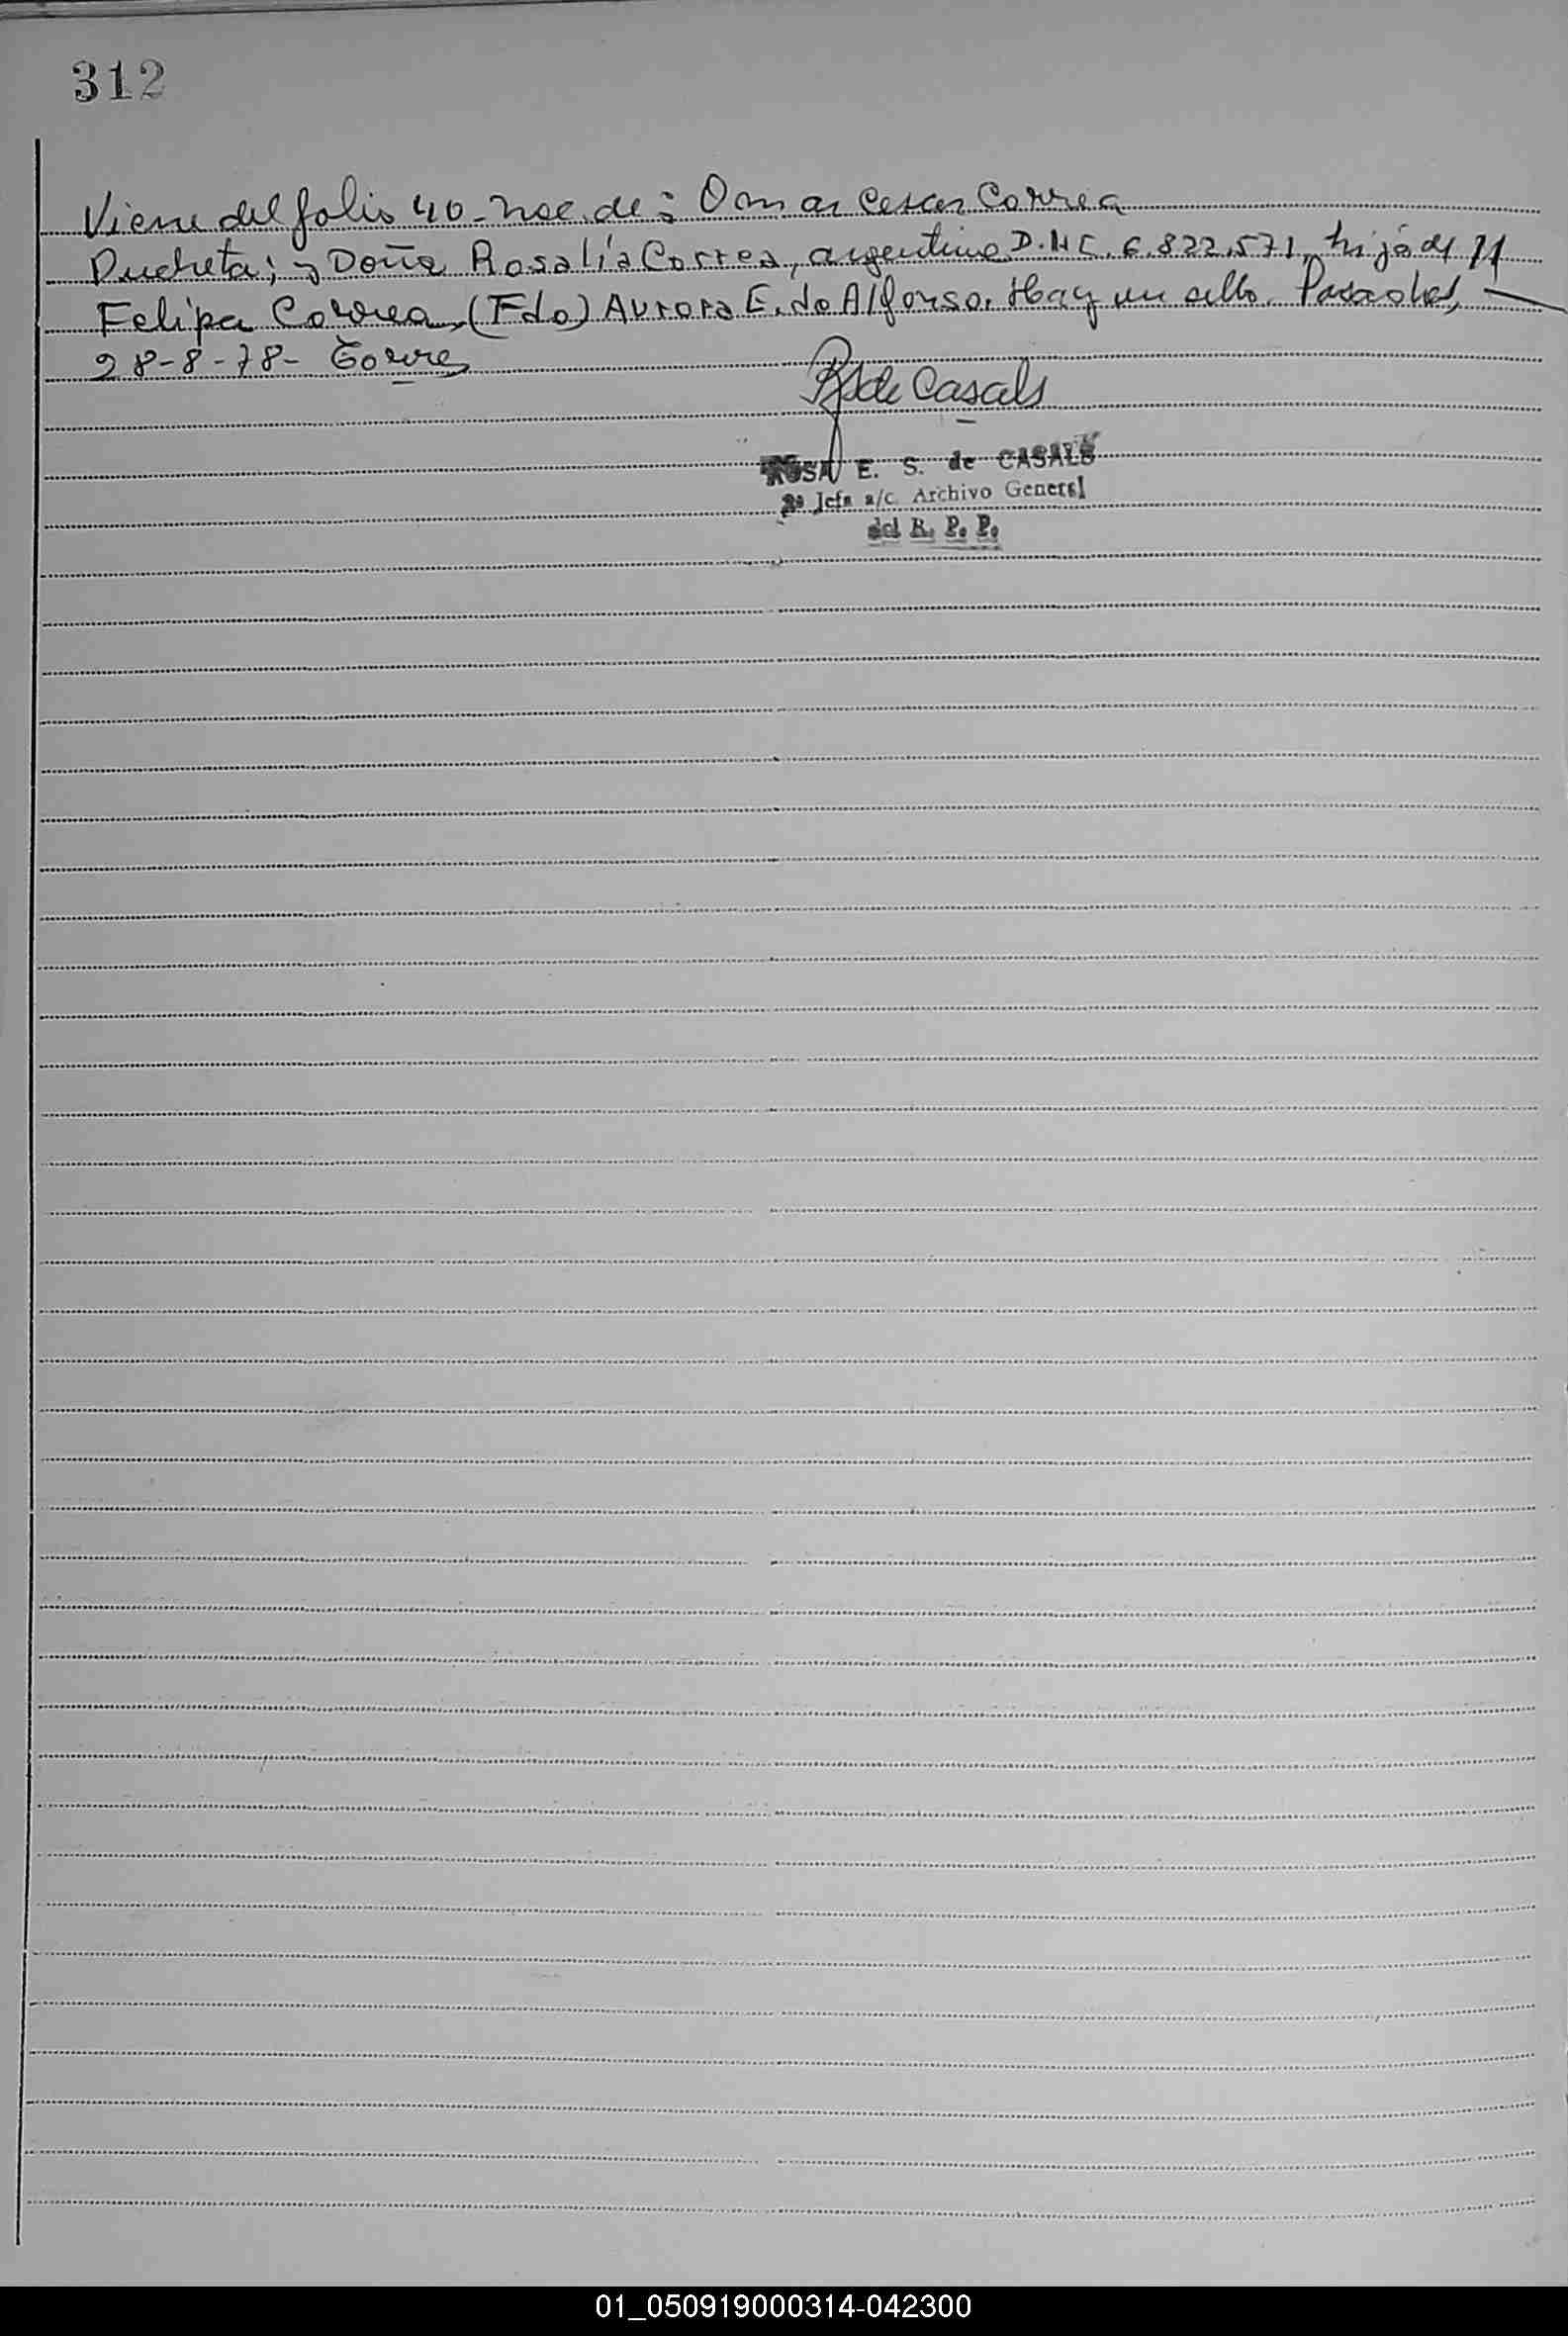 312
Viene del folio 40 - nac. de: Omar Cesar Correa
Pucheta; y Doña Rosalía Correa, argentina D.N.I. 6.822.571, hija de
Felipa Correa, (Fdo) Aurora E. de Alfonso. Hay un sello.
28-8-78- Torres
RS de Casals
ROSA E. S. de CASALS
2ª Jefa a/c. Archivo General
del R. P. P.
01_050919000314-042300